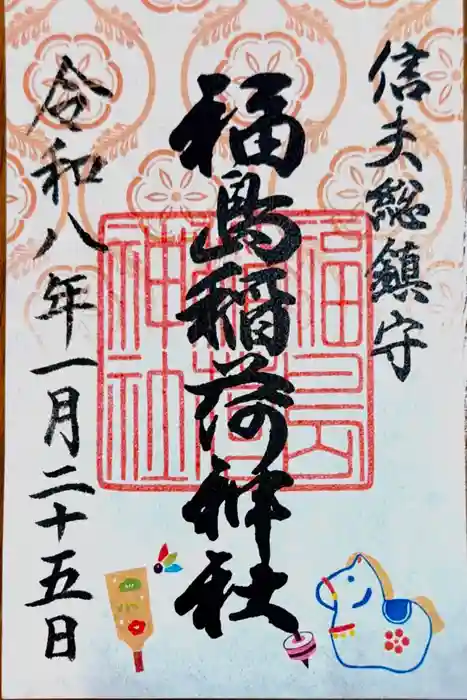 信夫総鎮守
福島稲荷神社
令和八年一月二十五日
福島
稲荷
神社